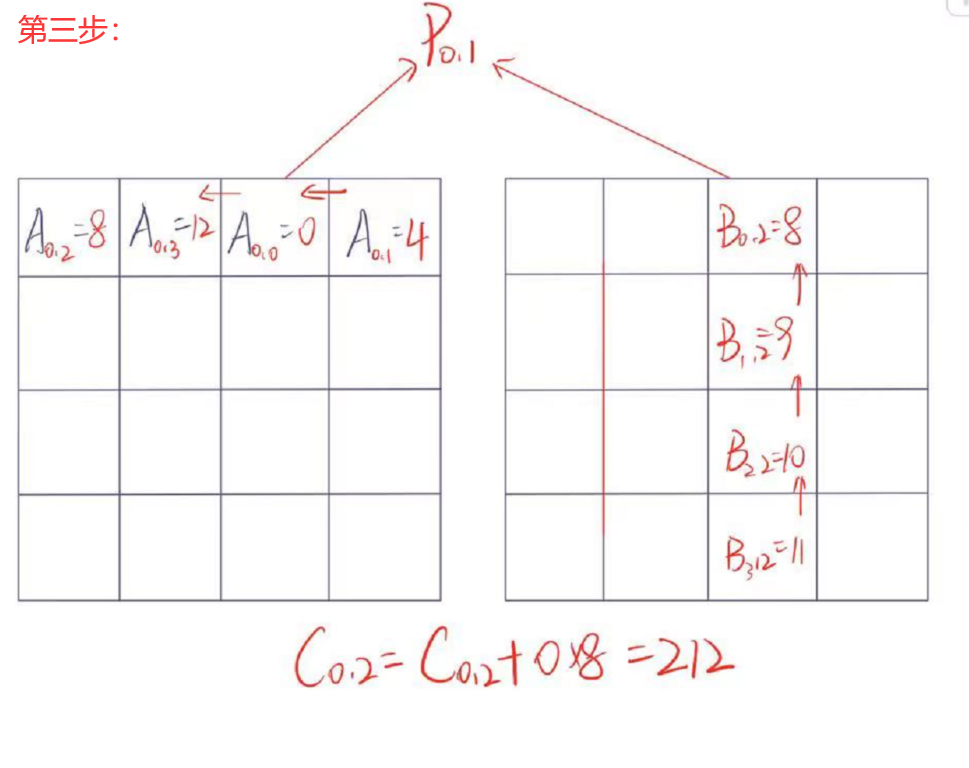 第三步:
P0,1
A0,2=8 A0,3=12 A0,0=0 A0,1=4
B0,2=8
B1,2=9
B2,2=10
B3,2=11
C0,2= C0,2+0×8=212